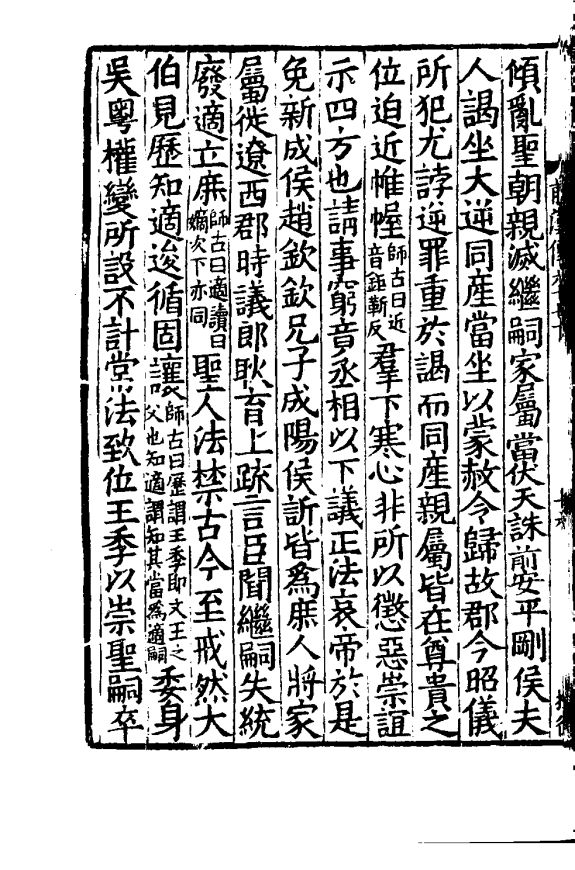 傾亂聖朝親滅繼嗣家屬當伏天誅前安平剛侯夫
人謁坐大逆同産當坐以蒙赦令歸故郡今昭儀
所犯尤誖逆罪重於謁而同産親屬皆在尊貴之
位迫近帷幄師古曰近音鉅靳反羣下寒心非所以懲惡崇誼
示四方也請事窮竟丞相以下議正法哀帝於是
免新成侯趙欽欽兄子成陽侯訢皆爲庶人將家
屬徙遼西郡時議郎耿育上疏言臣聞繼嗣失統
廢適立庶師古曰適讀曰嫡次下亦同聖人法禁古今至戒然大
伯見歷知適逡循固讓師古曰歷謂王季即文王之父也知適謂知其當爲適嗣委身
吳粵權變所設不計常法致位王季以崇聖嗣卒